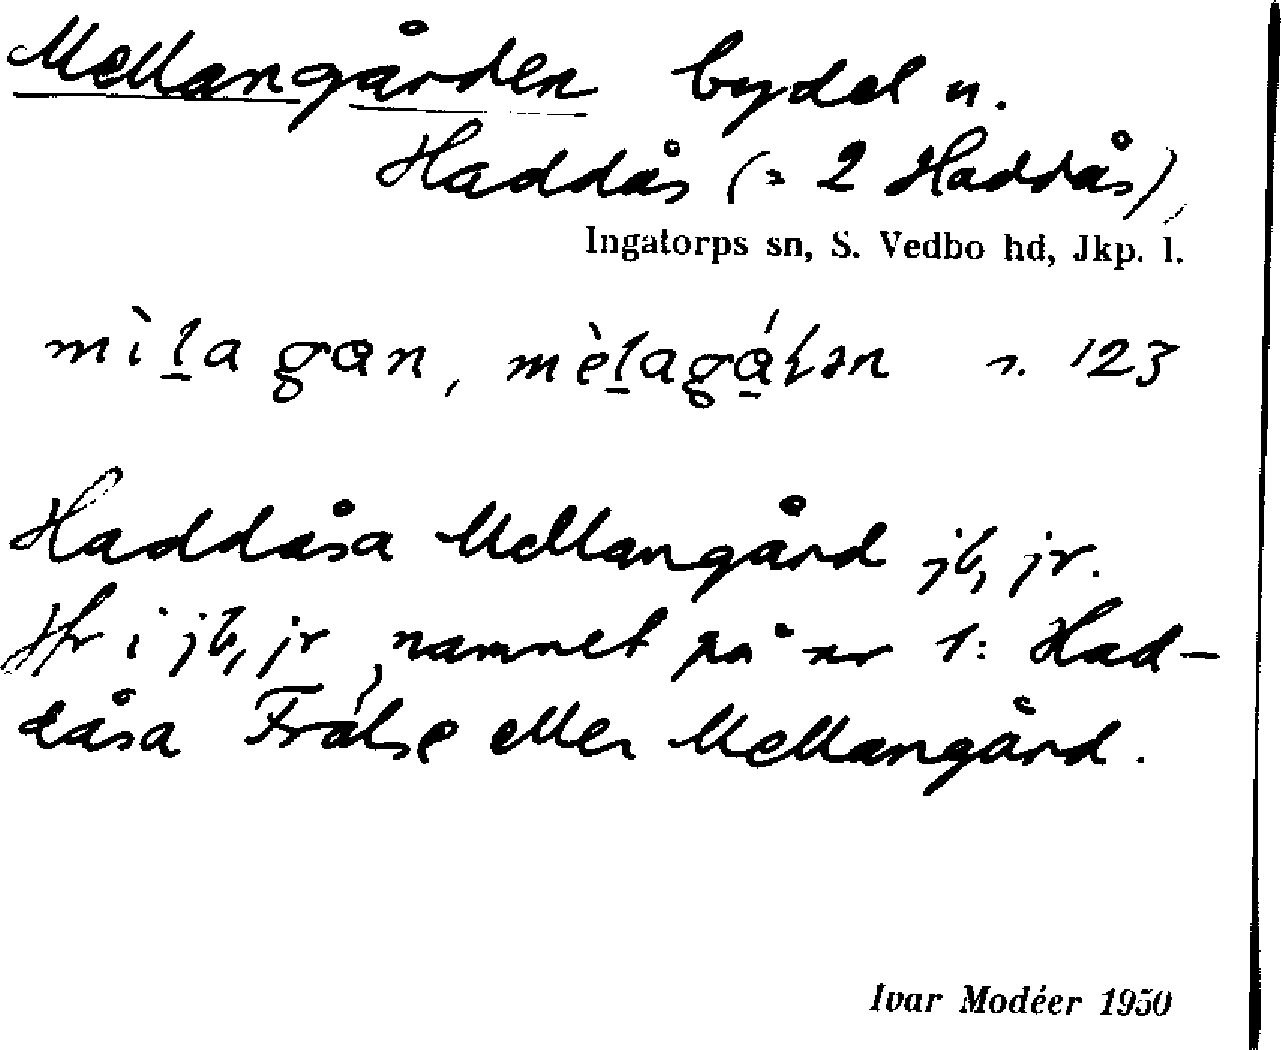 Mellangården bydel u.
Haddås (= 2 Haddås),
Ingatorps sn, S. Vedbo hd, Jkp. l.
s. 123
Haddåsa Mellangård jb, jr.
Hr i jb, jr, namnet på nr 1: Had-
dåsa Frälse eller Mellangård.
Ivar Modéer 1950